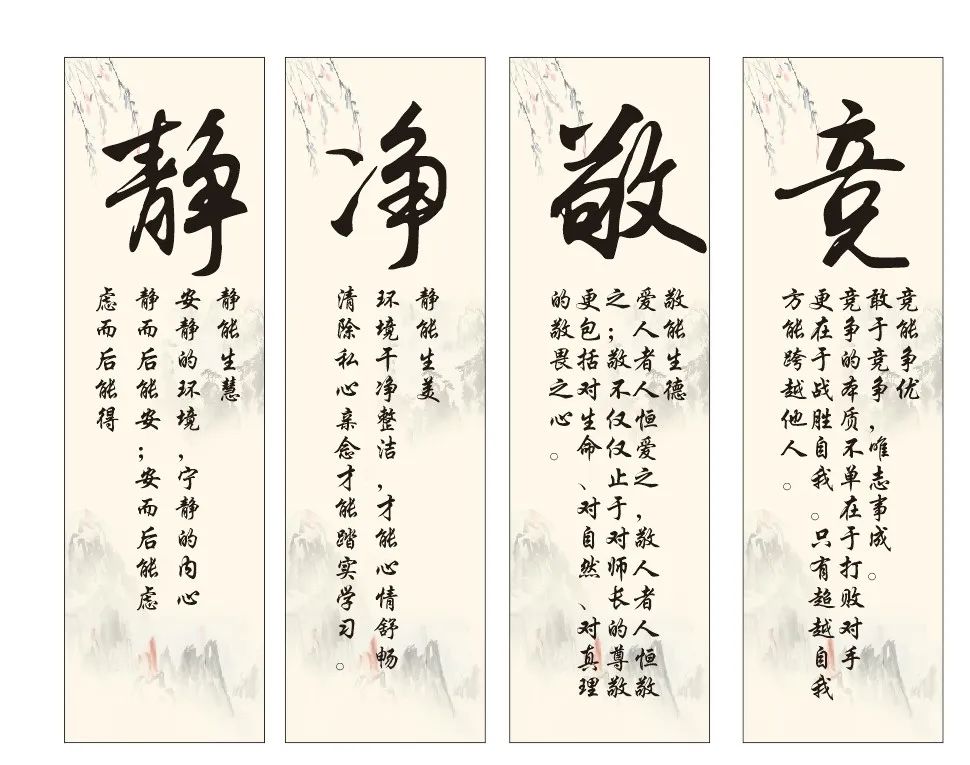 静
静能生慧
安静的环境,宁静的内心
静而后能安;安而后能虑
虑而后能得
净
静能生美
环境干净整洁,才能心情舒畅
清除私心杂念才能踏实学习。
敬
敬能生德
爱人者人恒爱之,敬人者人恒敬
之;敬不仅仅止于对师长的尊敬
更包括对生命、对自然、对真理
的敬畏之心。
竞
竞能争优
敢于竞争,唯志事成。
竞争的本质不单在于打败对手
更在于战胜自我。只有超越自我
方能跨越他人。